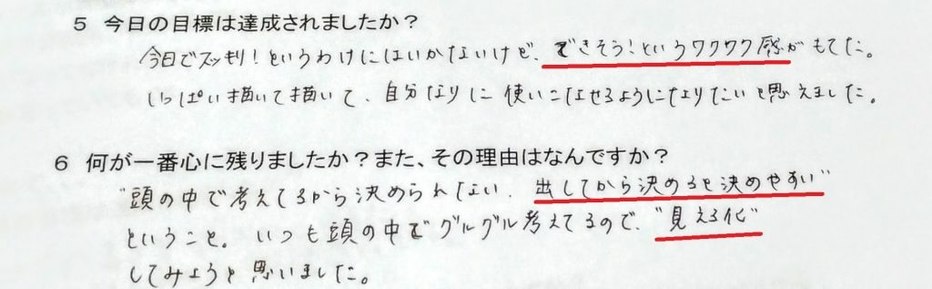 5 今日の目標は達成されましたか？
今日でスッキリ！というわけにはいかないけど、できそう！というワクワク感がもてた。
いっぱい描いて描いて、自分なりに使いこなせるようになりたいと思えました。
6 何が一番心に残りましたか？また、その理由はなんですか？
"頭の中で考えてるから決められない、出してから決めると決めやすい"
ということ。いつも頭の中でグルグル考えてるので、"見える化"
してみようと思いました。